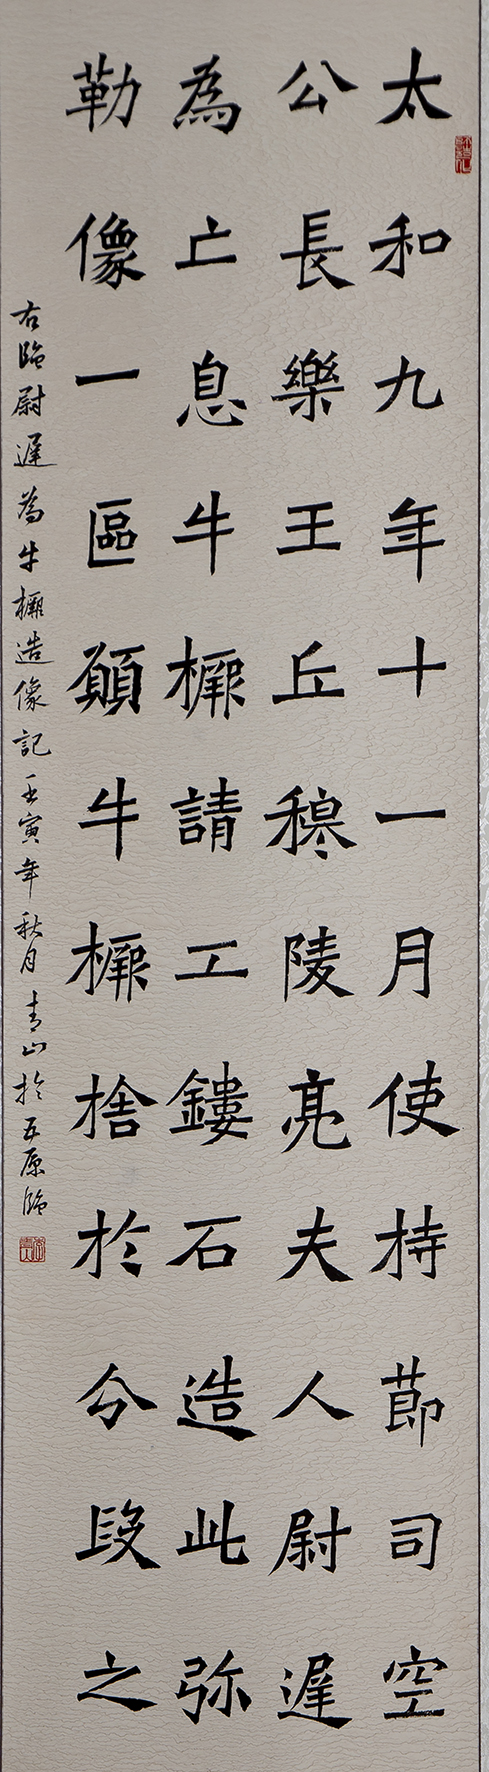 太和九年十一月使持莭司空
公長樂王丘穆陵亮夫人尉遲
為亡息牛橛請工鏤石造此弥
勒像一區願牛橛捨於分段之
右臨尉遲為牛橛造像記壬寅年秋月青山於五原臨